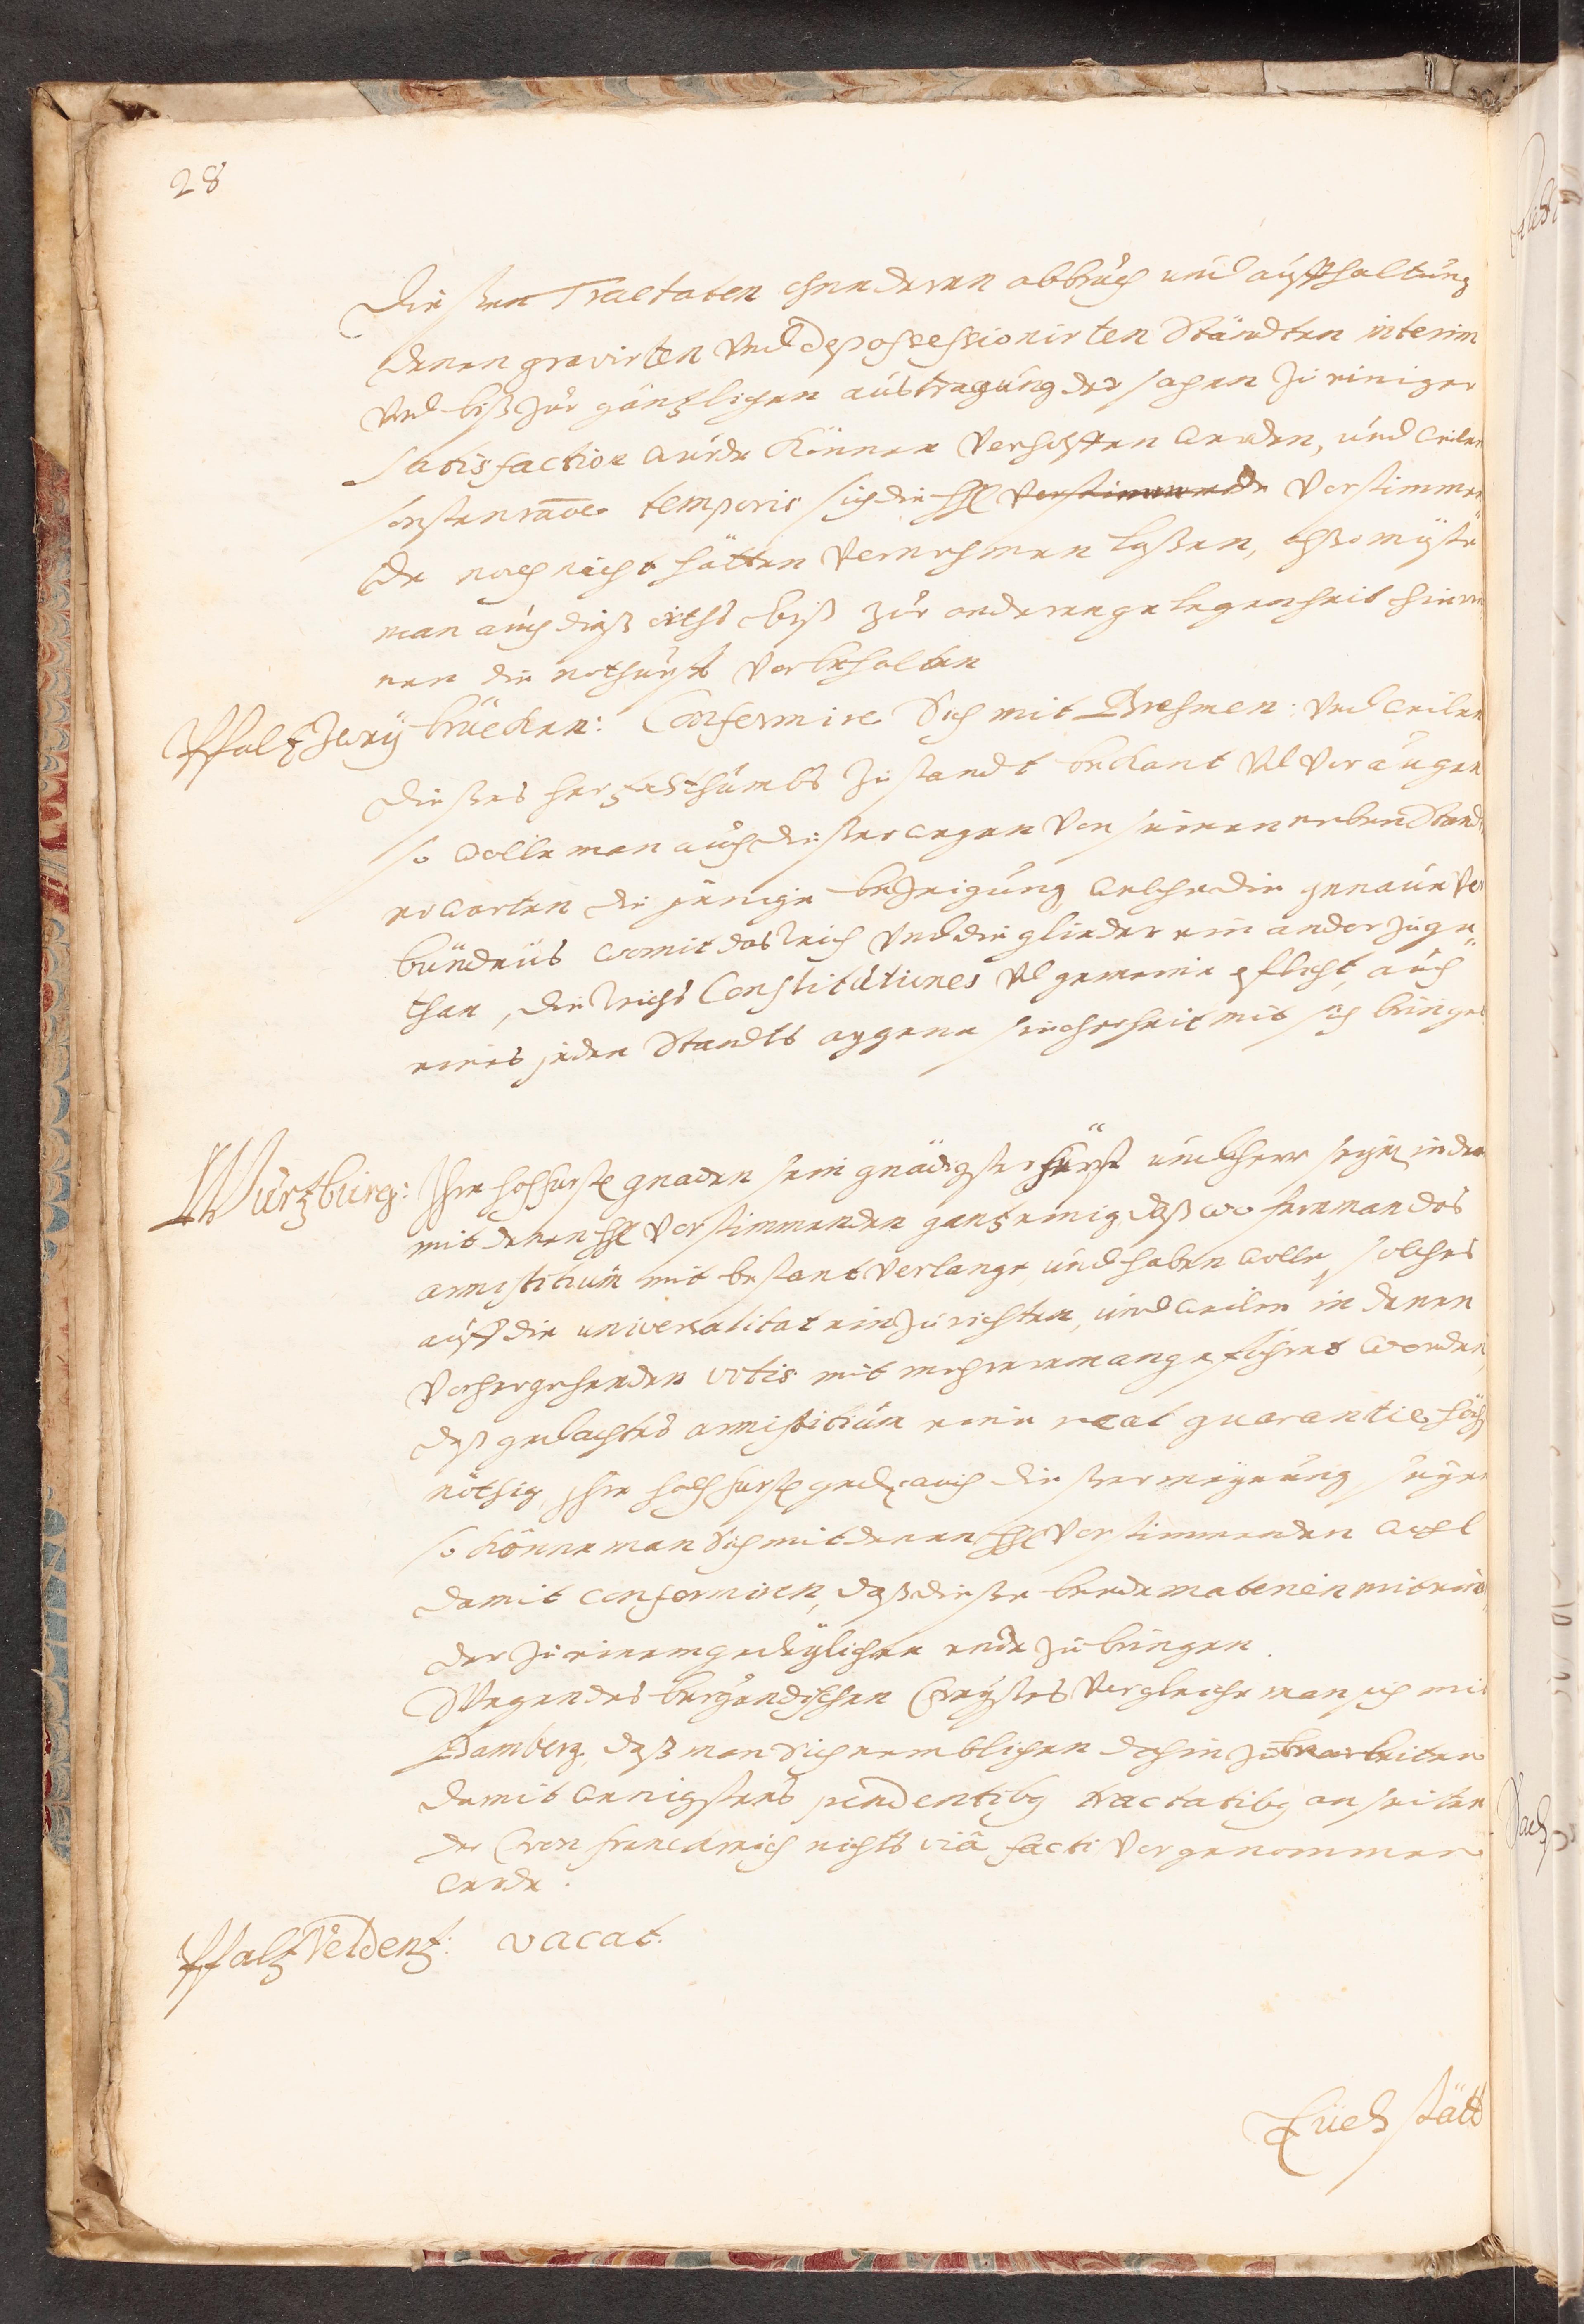 28
dießen Tractaten ohne deren abbruch und auffhaltung
denen gravirten und depossessionirten Ständten interim
und biß zur gäntzlichen austragung der sachen zu einiger
satisfaction würde können verholffen werden, und weilen
sich die hhl vorstimmende vorstimmen„
de noch nicht hätten vernehmen laßen, also müste
man auch dieß orths biß zur anderen gelegenheit hierin„
nen die nothurfft vorbehalten
Pfaltz Zweybrücken: Conformire Sich mit Brehmen: und weilen
dießes hertzogthumbs zustandt bekant und vor augen
so wolle man auch dießer wegen von seinen neben Stand
erwarten die jenige bezeigung, welche die genaue ver
bündnüs womit das Reich und die glieder ein ander zuge„
than, die Reichs Constitutiones und gemeine pflicht, auch
eines jeden Standts eygene sicherheit mit sich bringet
Würtzburg: Ihre hochfürstl gnaden sein gnädigster fürst und herr seyen in dem
mit denen hhl vorstimmenden gantz einig, daß wo fern man das
armistitium mit bestant verlange und haben wolle, solches
auff die universalitat einzurichten, und weilen in denen
vorhergehenden votis mit mehrerem angeführet worden,
daß gedachtes armistitium eine real guarantie höchst
nöthig, Ihre hochfürstl gnd. auch dießer meynung seyen
so könne man Sich mit denen hhl vorstimmenden wohl
damit conformiren, daß dieße beede materien mit ein
der zu einem gedeylichen ende zu bringen.
Wegen des burgundischen Creyßes vergleiche man sich mit
Bamberg, daß man Sich nemblichen dahin zu bearbeiten
damit wenigstens pendentibg tractatibg an seiten
der Cron Franckreich nichts viâ facti vorgenommen
werde.
Pfaltz Veldentz: vacat.
Eüchstätt